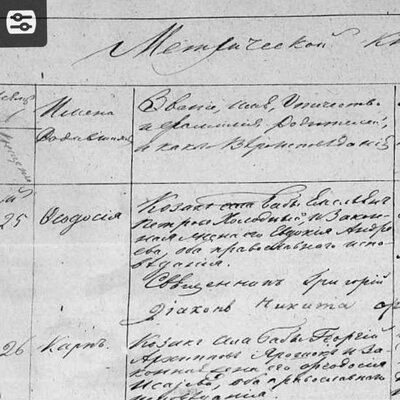 Метрической кн
Имена
Родившихся
Званіе, имя, Отчество
и фамилія Родителей,
и какого Вѣроисповѣданія
25
Ѳеодосія
Козакъ села Бабы
Петровъ Холодный и Закон
ная жена его Евдокія Андре
ева, оба православнаго испо
вѣданія.
Священникъ Григорій
Діаконъ Никита
26
Карпъ
Козакъ села Бабы Георгій
Архиповъ и За
конная жена его Ѳеодосія
Исаева, оба православнаго
исповѣданія